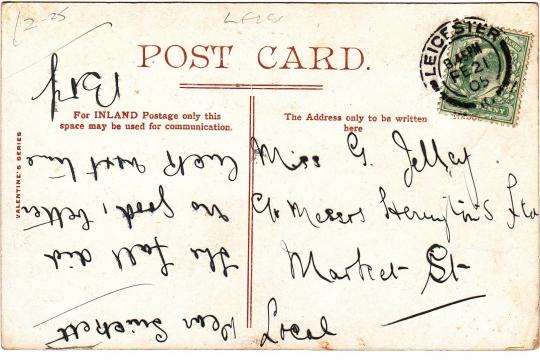 12-25
LEICS
POST CARD.
LEICESTER
8.45 PM
FE 21
05
For INLAND Postage only this
space may be used for communication.
The Address only to be written
here
VALENTINE'S SERIES
Miss G. Jelley.
c/o Messrs Herington's Ltd
Market St
Local
Dear
The fall did
no good, better
luck next time